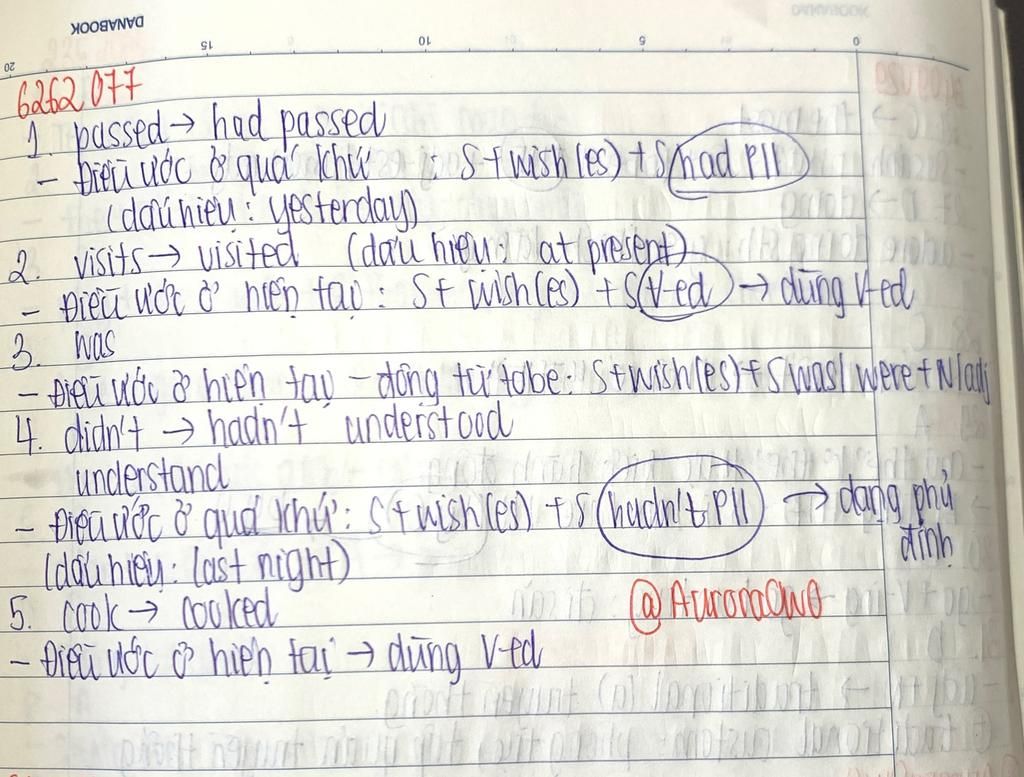 DANABOOK
20 15 10 5 0
6262 077
1. passed → had passed
- Điều ước ở quá khứ : S + wish(es) + S/had PII
(dấu hiệu : yesterday)
2. visits → visited (dấu hiệu : at present)
- Điều ước ở hiện tại : S + wish(es) + S(V-ed → dùng V-ed
3. was
- Điều ước ở hiện tại - động từ tobe: S+wish(es)+S was/were+N/adj
4. didn't → hadn't understood
understand
- Điều ước ở quá khứ: S + wish(es) + S hadn't PII → dạng phủ
định
(dấu hiệu : last night)
5. cook → cooked
@AuroraOwO
- Điều ước ở hiện tại → dùng V-ed